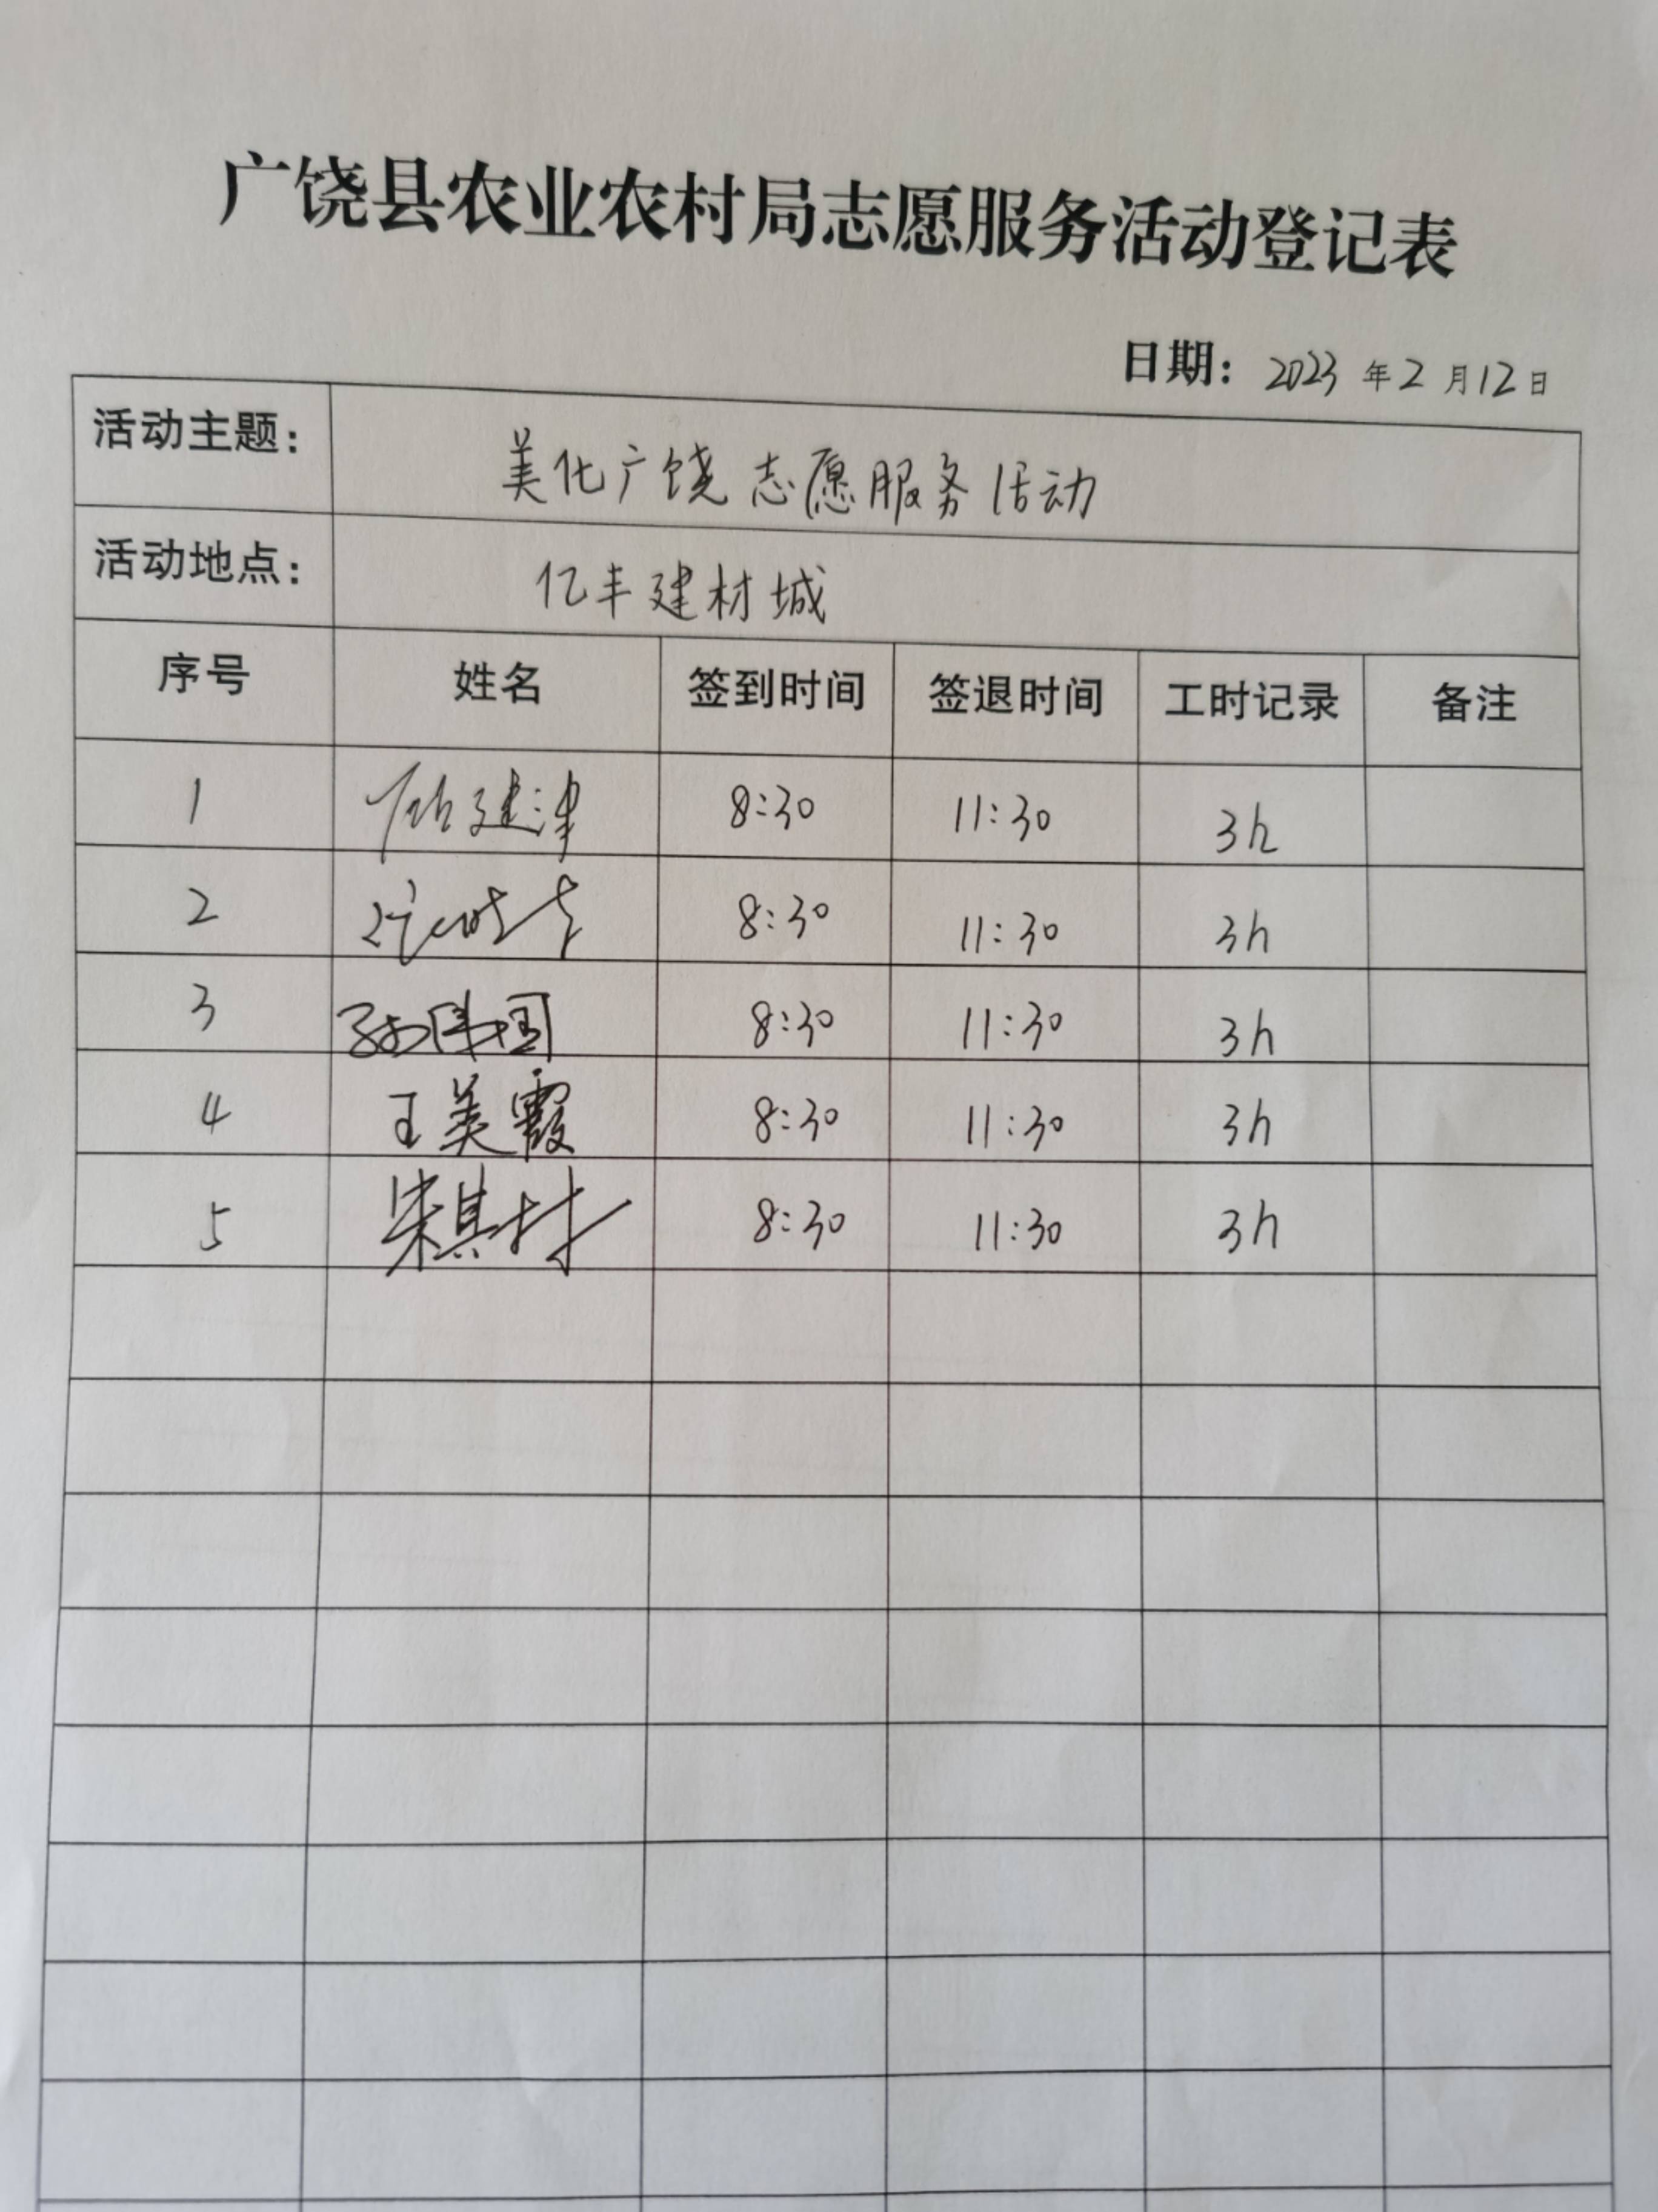 广饶县农业农村局志愿服务活动登记表
日期：2023年2月12日
活动主题： 美化广饶志愿服务活动
活动地点： 亿丰建材城
序号 姓名 签到时间 签退时间 工时记录 备注
1 建津 8:30 11:30 3h
2 8:30 11:30 3h
3 孙伟国 8:30 11:30 3h
4 王美霞 8:30 11:30 3h
5 宋其村 8:30 11:30 3h